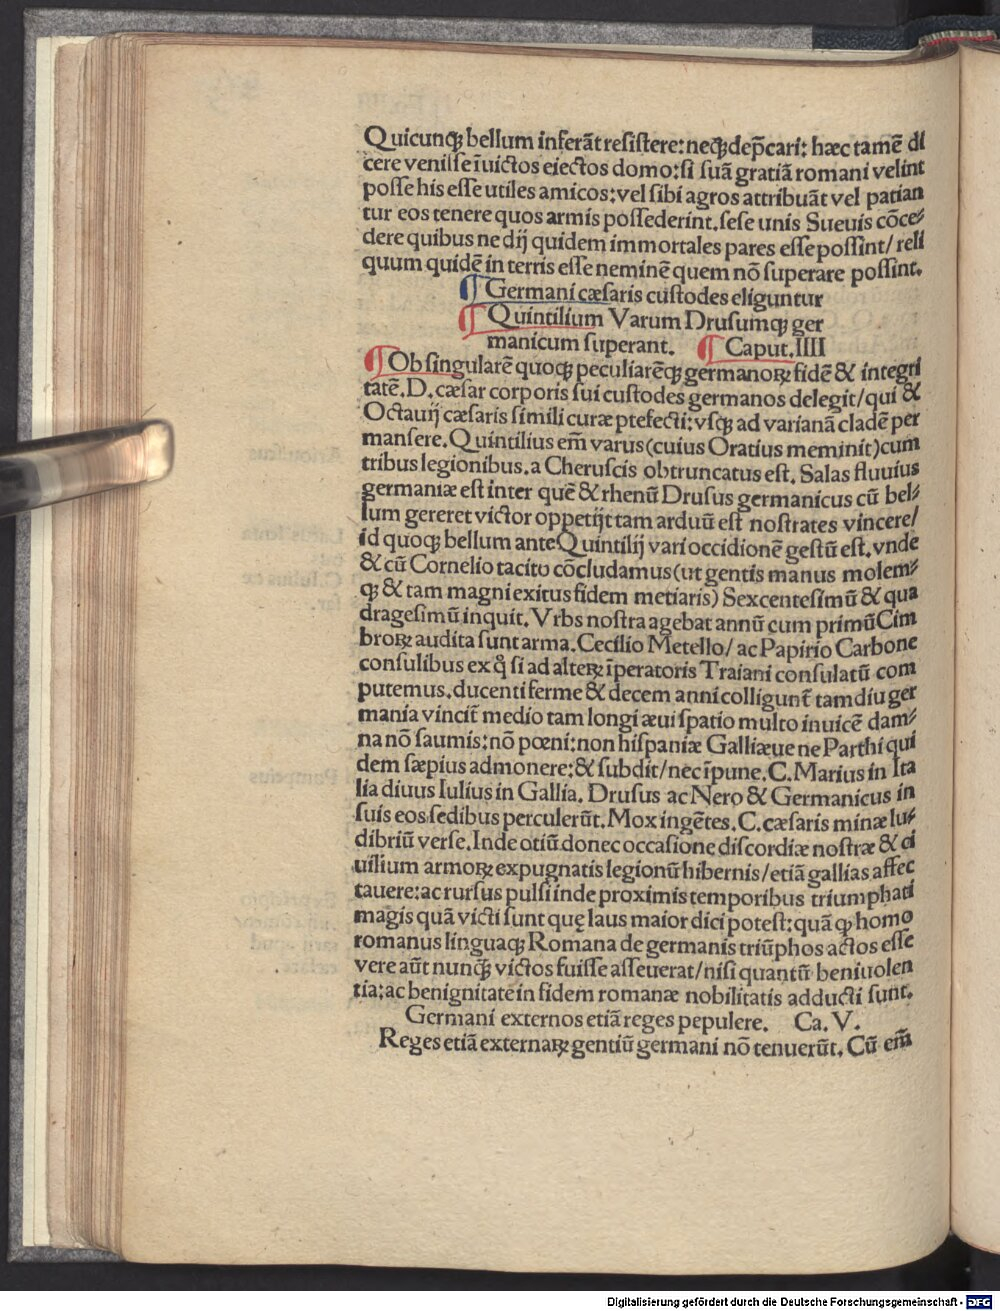 Quicunq̃ bellum inferãt resistere: neq̃ dep̃cari: hæc tamẽ di
cere venisse ĩuictos eiectos domo: si suã gratiã romani velint
posse his esse utiles amicos: vel sibi agros attribuãt vel patian
tur eos tenere quos armis possederint. sese unis Sueuis cõce⸗
dere quibus ne dij quidem immortales pares esse possint/ reli
quum quidẽ in terris esse neminẽ quem nõ superare possint.
¶ Germani cæsaris custodes eliguntur
¶ Quintilium Varum Drusumqꝫ ger
manicum superant. ¶ Caput. IIII
¶ Ob singularẽ quoqꝫ peculiarẽqꝫ germanoꝝ fidẽ & integri
tatẽ. D. cæsar corporis sui custodes germanos delegit/ qui &
Octauij cæsaris simili curæ ptefecti: vsqꝫ ad varianã cladẽ per
mansere. Quintilius em̃ varus (cuius Oratius meminit) cum
tribus legionibus. a Cheruscis obtruncatus est. Salas fluuius
germaniæ est inter quẽ & rhenũ Drusus germanicus cũ bel⸗
lum gereret victor oppetijt tam arduũ est nostrates vincere/
id quoqꝫ bellum ante Quintilij vari occidionẽ gestũ est. vnde
& cũ Cornelio tacito cõcludamus (ut gentis manus molem⸗
qꝫ & tam magni exitus fidem metiaris) Sexcentesimũ & qua
dragesimũ inquit. Vrbs nostra agebat annũ cum primũ Cim
broꝝ audita sunt arma. Cecilio Metello/ ac Papirio Carbone
consulibus ex q̊ si ad alteꝝ ĩperatoris Traiani consulatũ com
putemus. ducenti ferme & decem anni colligunt̃ tamdiu ger
mania vincit̃ medio tam longi æui spatio multo inuicẽ dam⸗
na nõ saumis: nõ pœni: non hispaniæ Galliæue ne Parthi qui
dem sæpius admonere: & subdit/ nec ĩpune. C. Marius in Ita
lia diuus Iulius in Gallia. Drusus ac Nero & Germanicus in
suis eos sedibus perculerũt. Mox ingẽtes. C. cæsaris minæ lu⸗
dibriũ verse. Inde otiũ donec occasione discordiæ nostræ & ci
uilium armoꝝ expugnatis legionũ hibernis/ etiã gallias affec
tauere: ac rursus pulsi inde proximis temporibus triumphati
magis quã victi sunt quę laus maior dici potest: quã qꝫ homo
romanus linguaqꝫ Romana de germanis triũphos actos esse
vere aũt nunq̃ victos fuisse asseuerat/ nisi quantũ beniuolen
tia: ac benignitate in fidem romanæ nobilitatis adducti sunt.
Germani externos etiã reges pepulere. Ca. V.
Reges etiã externaꝝ gentiũ germani nõ tenuerũt. Cũ em̃
Digitalisierung gefördert durch die Deutsche Forschungsgemeinschaft - DFG